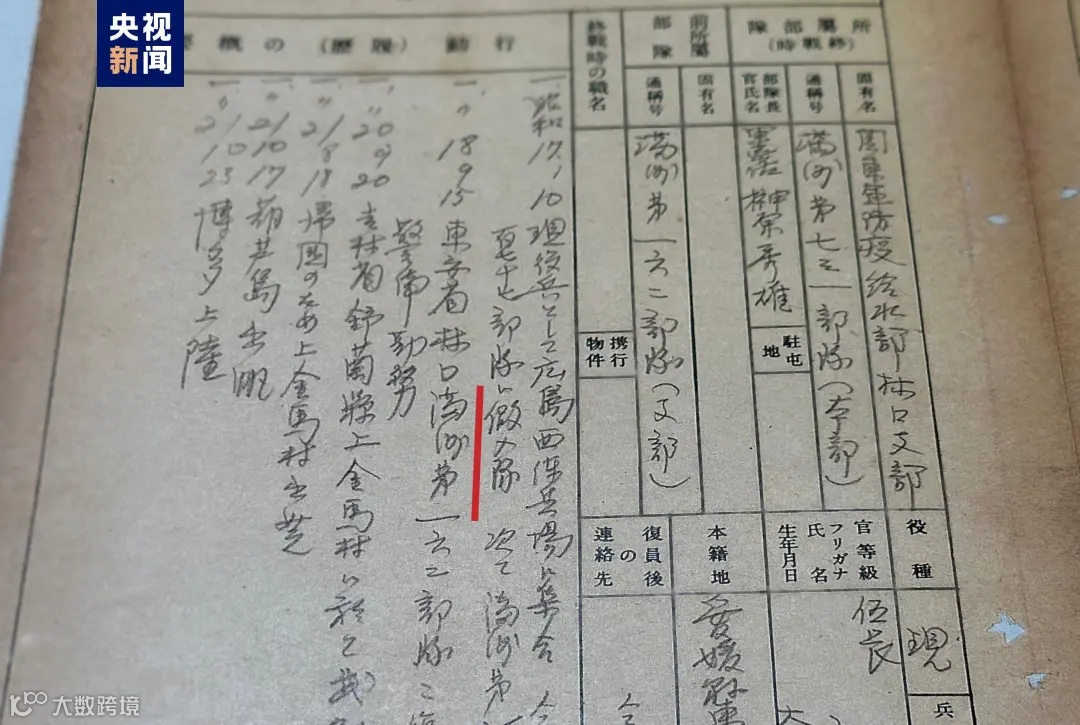 央视
新闻
所屬部隊
(終戰時)
固有名
関東軍防疫給水部林口支部
通稱号
満洲第七三一部隊(本部)
部隊長
官氏名
榊原秀雄
駐屯
地
前所屬
部隊
固有名
通稱号
満洲第一六二部隊(支部)
終戰時の職名
携行
物件
役種
現
兵
官等級
伍長
フリガナ
氏名
生年月日
本籍地
愛媛
復員後
の
連絡先
行動(履歷)の概
一、昭和17、10 現役兵として広島西練兵場に集合
部隊に仮入隊 次で満洲第
一、〃18 9 15 東安省林口満洲第一六二部隊
警備勤務
一、〃20 9 20 吉林省舒蘭縣上金馬村に於て
一、〃21 8 18 帰国のため上金馬村出発
一、〃21 10 17 葫芦島出帆
一、〃21 10 23 博多上陸
大数跨境